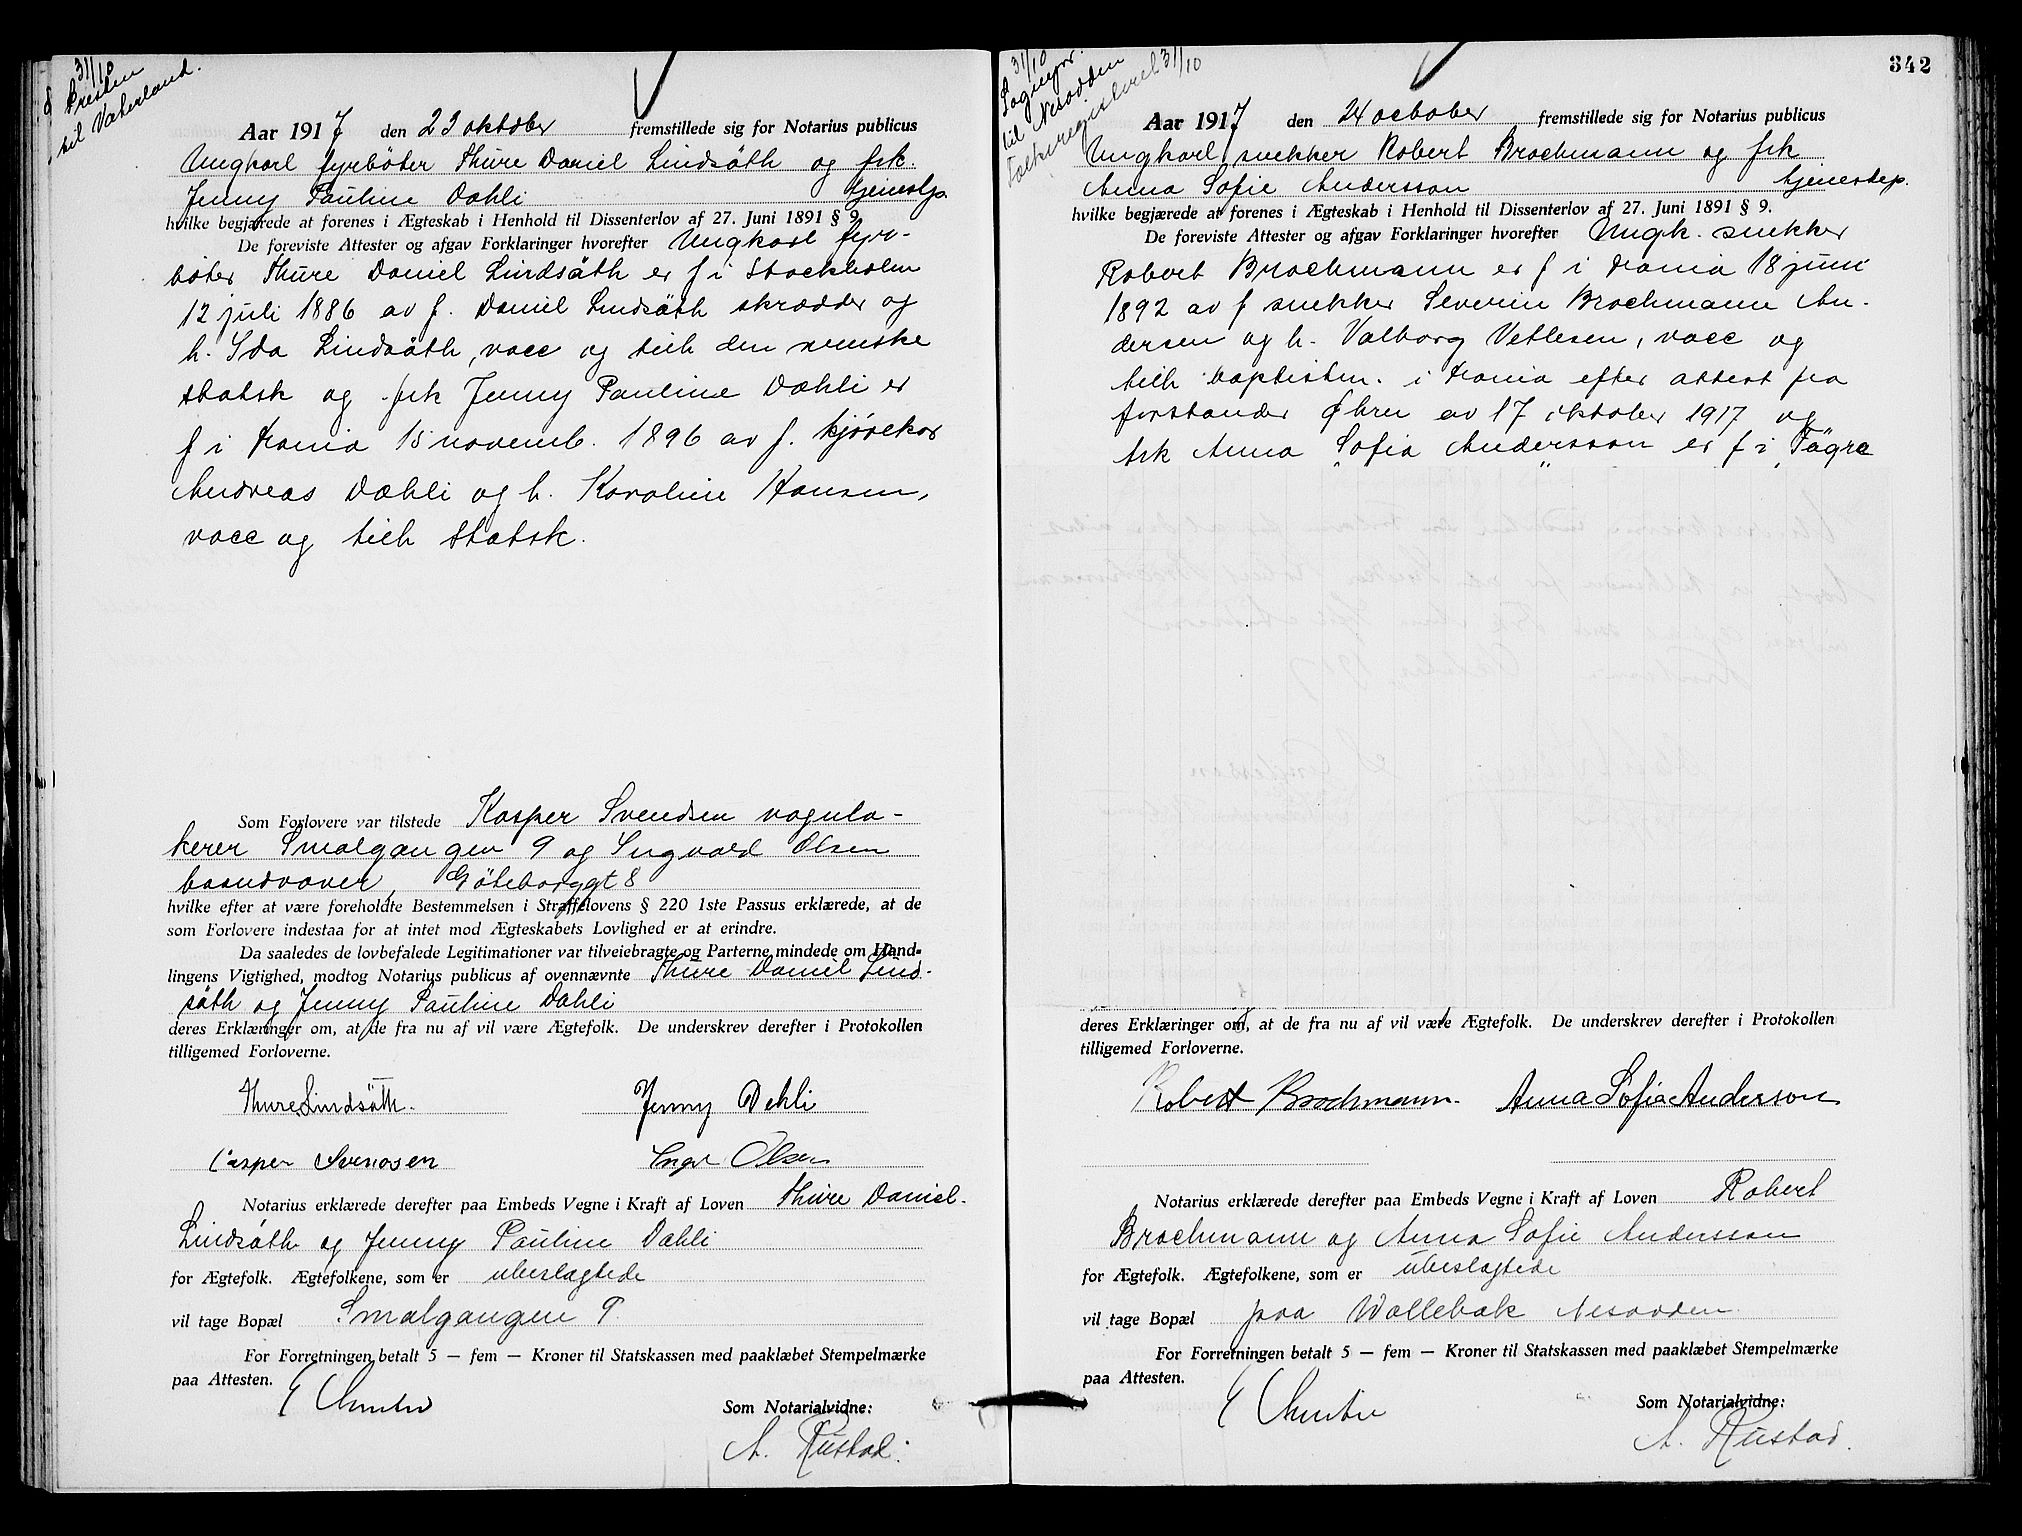 31/10
Presten
til Vaterland.
Aar 1917 den 23 oktober fremstillede sig for Notarius publicus
Ungkarl fyrbøter Thure Daniel Lindsäth og frk.
Jenny Pauline Dahli tjenestp.
hvilke begjærede at forenes i Ægteskab i Henhold til Dissenterlov af 27. Juni 1891 § 9.
De foreviste Attester og afgav Forklaringer hvorefter Ungkarl fyr-
bøter Thure Daniel Lindsäth er f i Stockholm
12 juli 1886 av f. Daniel Lindsäth skrædder og
h. Ida Lindsäth, vacc og tilh den svenske
statsk og frk Jenny Pauline Dæhli er
f i Krania 15 novemb. 1896 av f. kjørekar
Andreas Dæhli og h. Karoline Hansen,
vacc og tilh Statsk.
Som Forlovere var tilstede Kasper Svendsen vognla-
kerer Smalgangen 9 og Ingvald Olsen
baandvæver, Gøteborggt 8
hvilke efter at være foreholdte Bestemmelsen i Straffelovens § 220 1ste Passus erklærede, at de
som Forlovere indestaa for at intet mod Ægteskabets Lovlighed er at erindre.
Da saaledes de lovbefalede Legitimationer var tilveiebragte og Parterne mindede om Hand-
lingens Vigtighed, modtog Notarius publicus af ovennævnte Thure Daniel Lind-
säth og Jenny Pauline Dahli
deres Erklæringer om, at de fra nu af vil være Ægtefolk. De underskrev derefter i Protokollen
tilligemed Forloverne.
Thure Lindsäth. Jenny Dehli
Casper Svendsen Ingv Olsen
Notarius erklærede derefter paa Embeds Vegne i Kraft af Loven Thure Daniel
Lindsäth og Jenny Pauline Dahli
for Ægtefolk. Ægtefolkene, som er ubeslægtede
vil tage Bopæl Smalgangen 9.
For Forretningen betalt 5 — fem — Kroner til Statskassen med paaklæbet Stempelmærke
paa Attesten.
Som Notarialvidne:
A. Rustad.
342
31/10
Sognepr.
til Nesodden
Folkeregisteret 31/10
Aar 1917 den 24 october fremstillede sig for Notarius publicus
Ungkarl snekker Robert Brochmann og frk
Anna Sofie Andersson tjenestep.
hvilke begjærede at forenes i Ægteskab i Henhold til Dissenterlov af 27. Juni 1891 § 9.
De foreviste Attester og afgav Forklaringer hvorefter Ungk. snekker
Robert Brochmann er f i Krania 18 juni
1892 av f snekker Severin Brochmann An-
dersen og h. Valborg Vetlesen, vacc og
tilh baptisten. i Krania efter attest fra
forstander Øhrn av 17 oktober 1917 og
frk Anna Sofia Andersson er f i Fägre
deres Erklæringer om, at de fra nu af vil være Ægtefolk. De underskrev derefter i Protokollen
tilligemed Forloverne.
Robert Brochmann. Anna Sofia Anderson
Notarius erklærede derefter paa Embeds Vegne i Kraft af Loven Robert
Brochmann og Anna Sofie Andersson
for Ægtefolk. Ægtefolkene, som er ubeslægtede
vil tage Bopæl paa Wallebæk Nesodden.
For Forretningen betalt 5 — fem — Kroner til Statskassen med paaklæbet Stempelmærke
paa Attesten.
Som Notarialvidne:
A. Rustad.